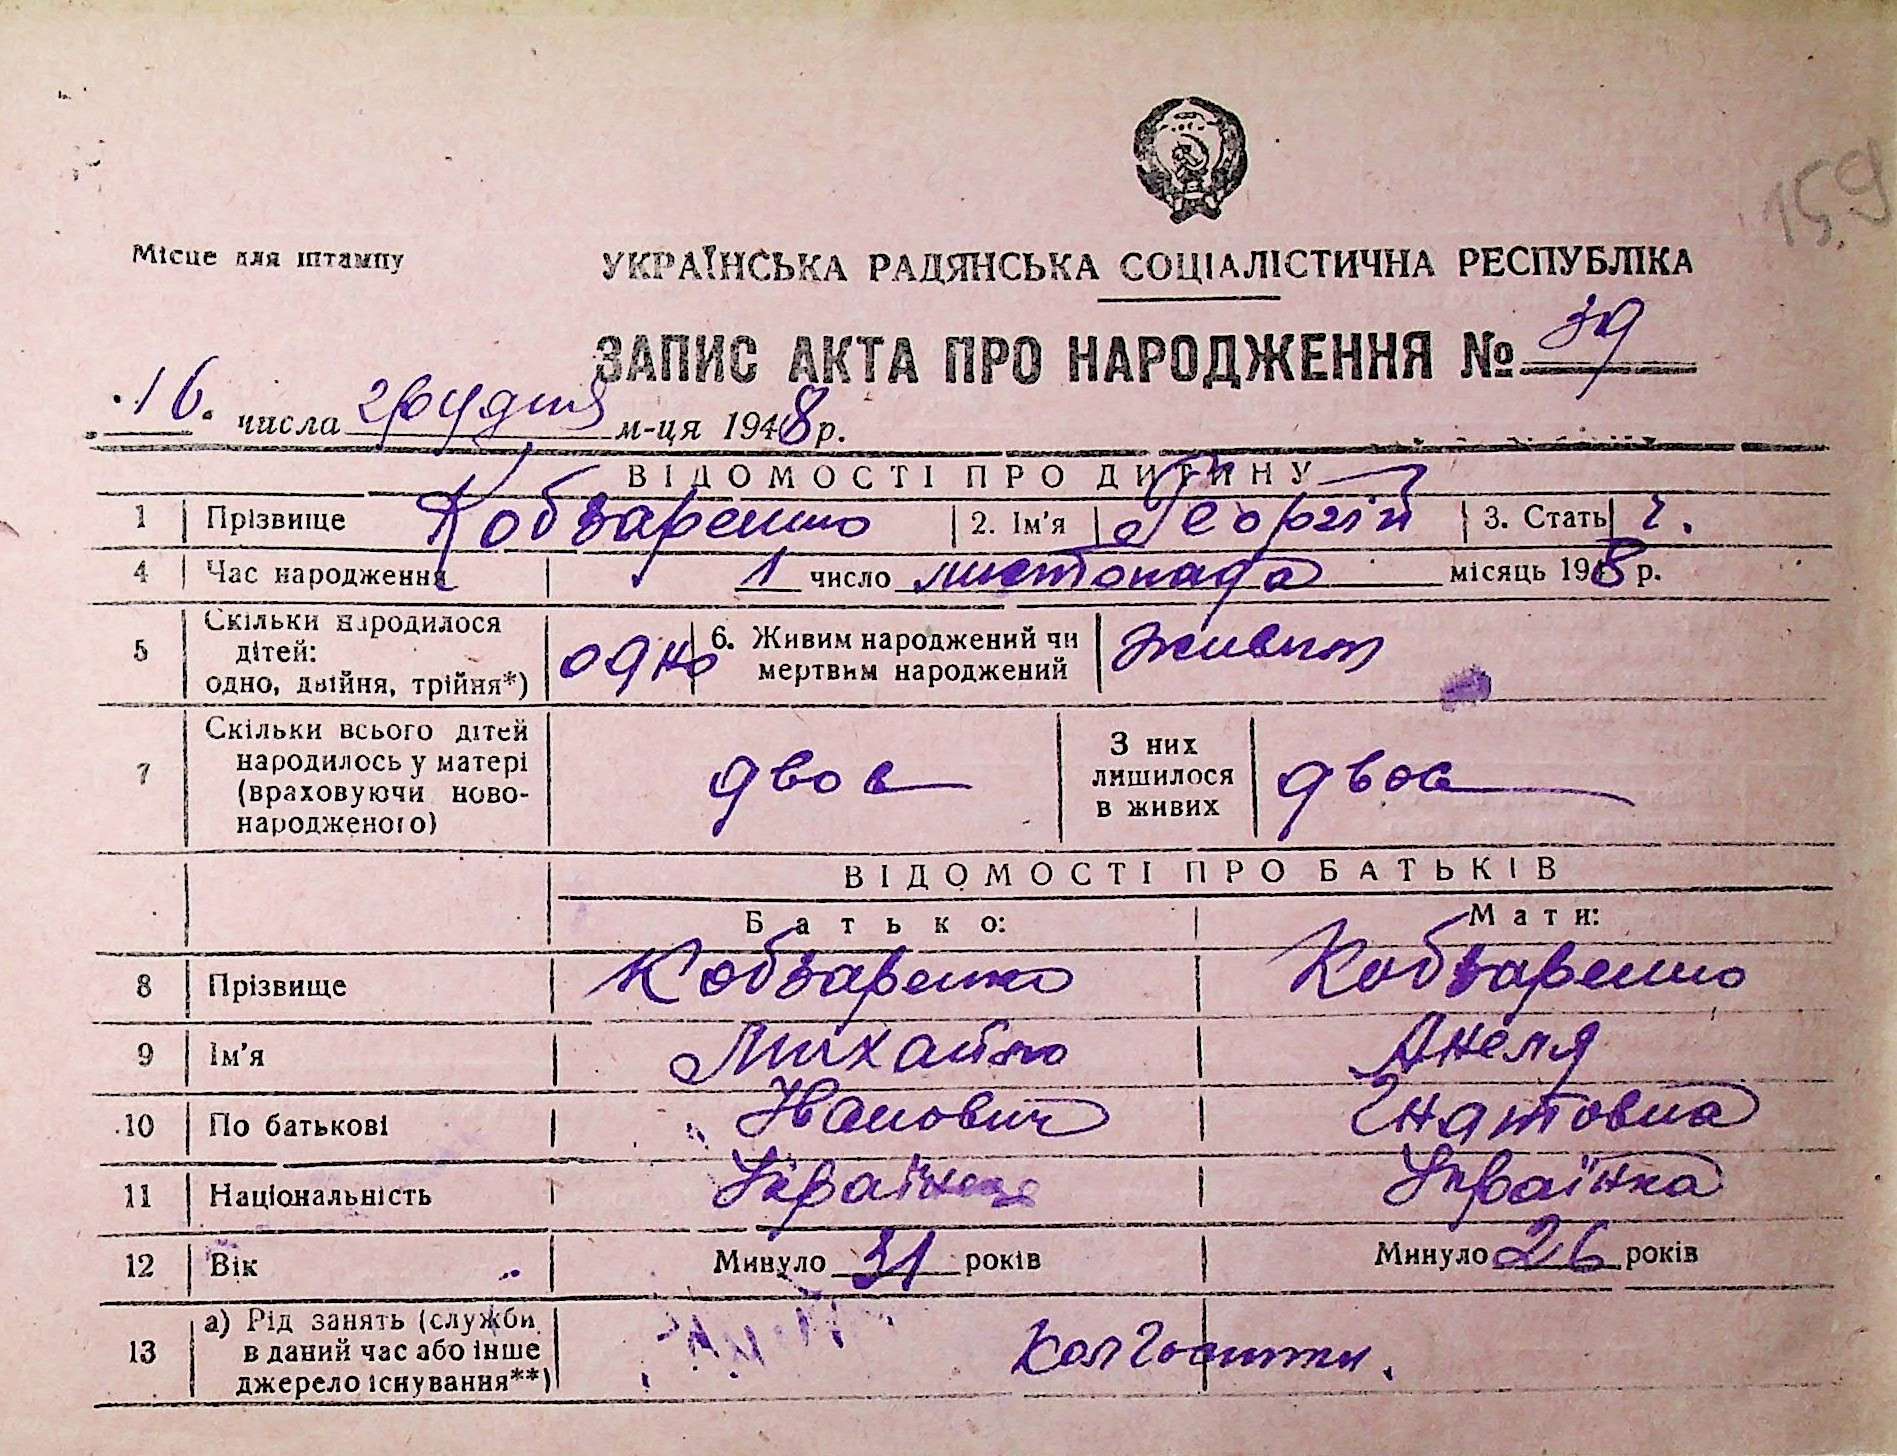 159
Місце для штампу
УКРАЇНСЬКА РАДЯНСЬКА СОЦІАЛІСТИЧНА РЕСПУБЛІКА
ЗАПИС АКТА ПРО НАРОДЖЕННЯ № 39
16 числа грудня м-ця 1948 р.
ВІДОМОСТІ ПРО ДИТИНУ
1 Прізвище Кобзаренко 2. Ім'я Георгій 3. Стать ч.
4 Час народження 1 число листопада місяць 1948 р.
5 Скільки народилося дітей: одно, двійня, трійня*) одно 6. Живим народжений чи мертвим народжений живим
7 Скільки всього дітей народилось у матері (враховуючи ново-народженого) двоє З них лишилося в живих двоє
ВІДОМОСТІ ПРО БАТЬКІВ
Батько: Мати:
8 Прізвище Кобзаренко Кобзаренко
9 Ім'я Михайло Анеля
10 По батькові Іванович Гнатовна
11 Національність Українець Українка
12 Вік Минуло 31 років Минуло 26 років
13 а) Рід занять (служби в даний час або інше джерело існування**) Колгоспники.